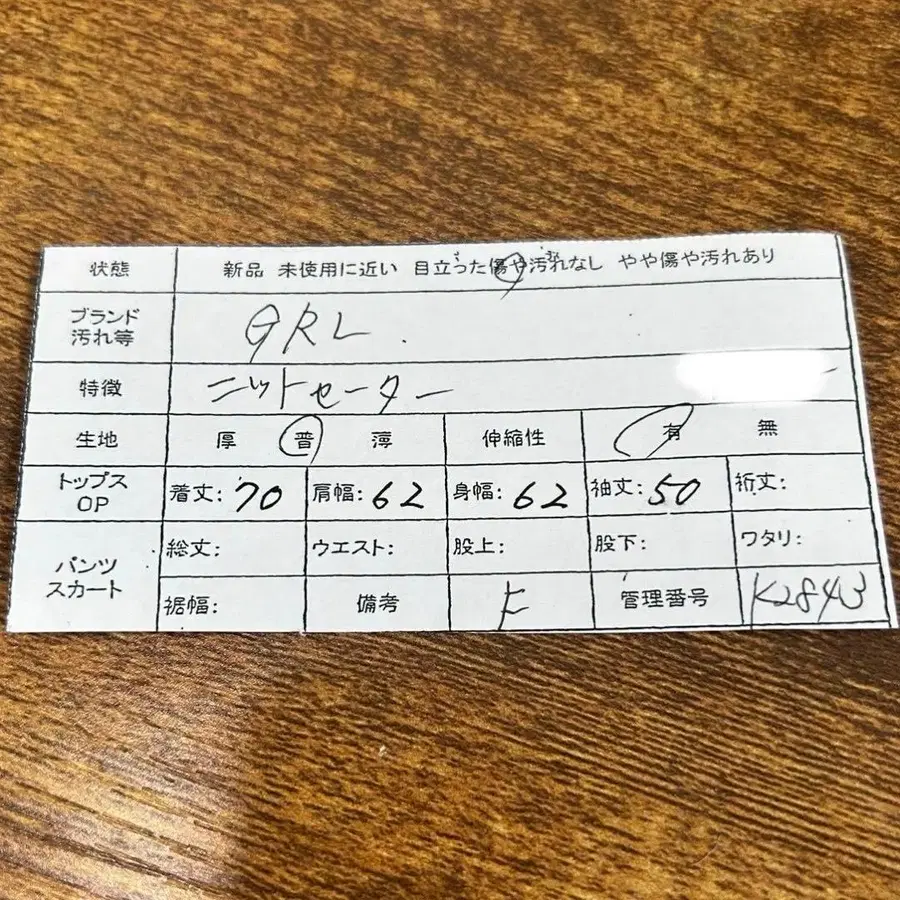 状態 新品 未使用に近い 目立った傷や汚れなし やや傷や汚れあり
ブランド 汚れ等 GRL
特徴 ニットセーター
生地 厚 普 薄 伸縮性 有 無
トップス OP 着丈:70 肩幅:62 身幅:62 袖丈:50 裄丈:
パンツ スカート 総丈: ウエスト: 股上: 股下: ワタリ:
裾幅: 備考 F 管理番号 K2843